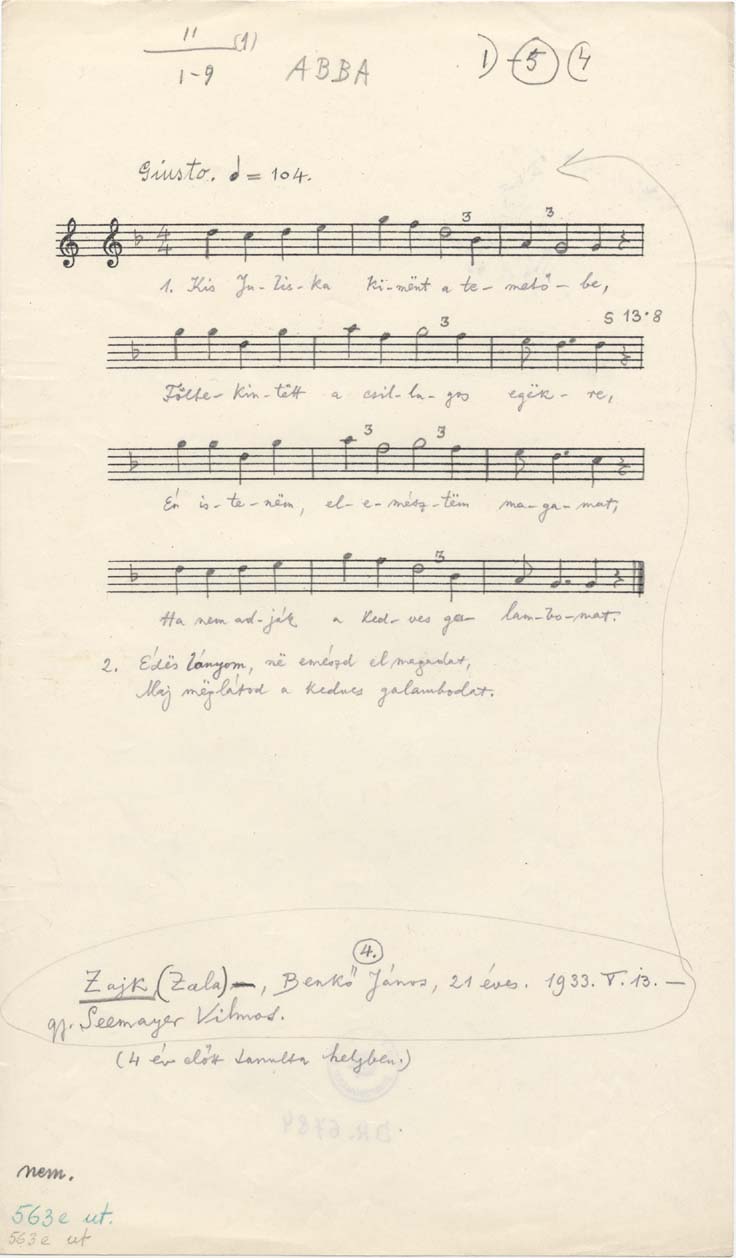 11 (1)
1-9
ABBA
1) -5 (4
Giusto. = 104.
3 3
1. Kis Ju-lis-ka ki-mënt a te-mető-be,
S 13·8
3
Fölte-kin-tëtt a csil-la-gos egëk-re,
3 3
Én is-te-nëm, el-e-mész-tëm ma-ga-mat,
3
Ha nem ad-ják a ked-ves ga-lam-bo-mat.
2. Édës lányom, në emészd el magadat,
Maj mëglátod a kedves galambodat.
4.
Zajk (Zala), Benkő János, 21 éves. 1933. V. 13. —
gy. Seemayer Vilmos.
(4 év előtt tanulta helyben.)
nem.
563e ut.
563e ut